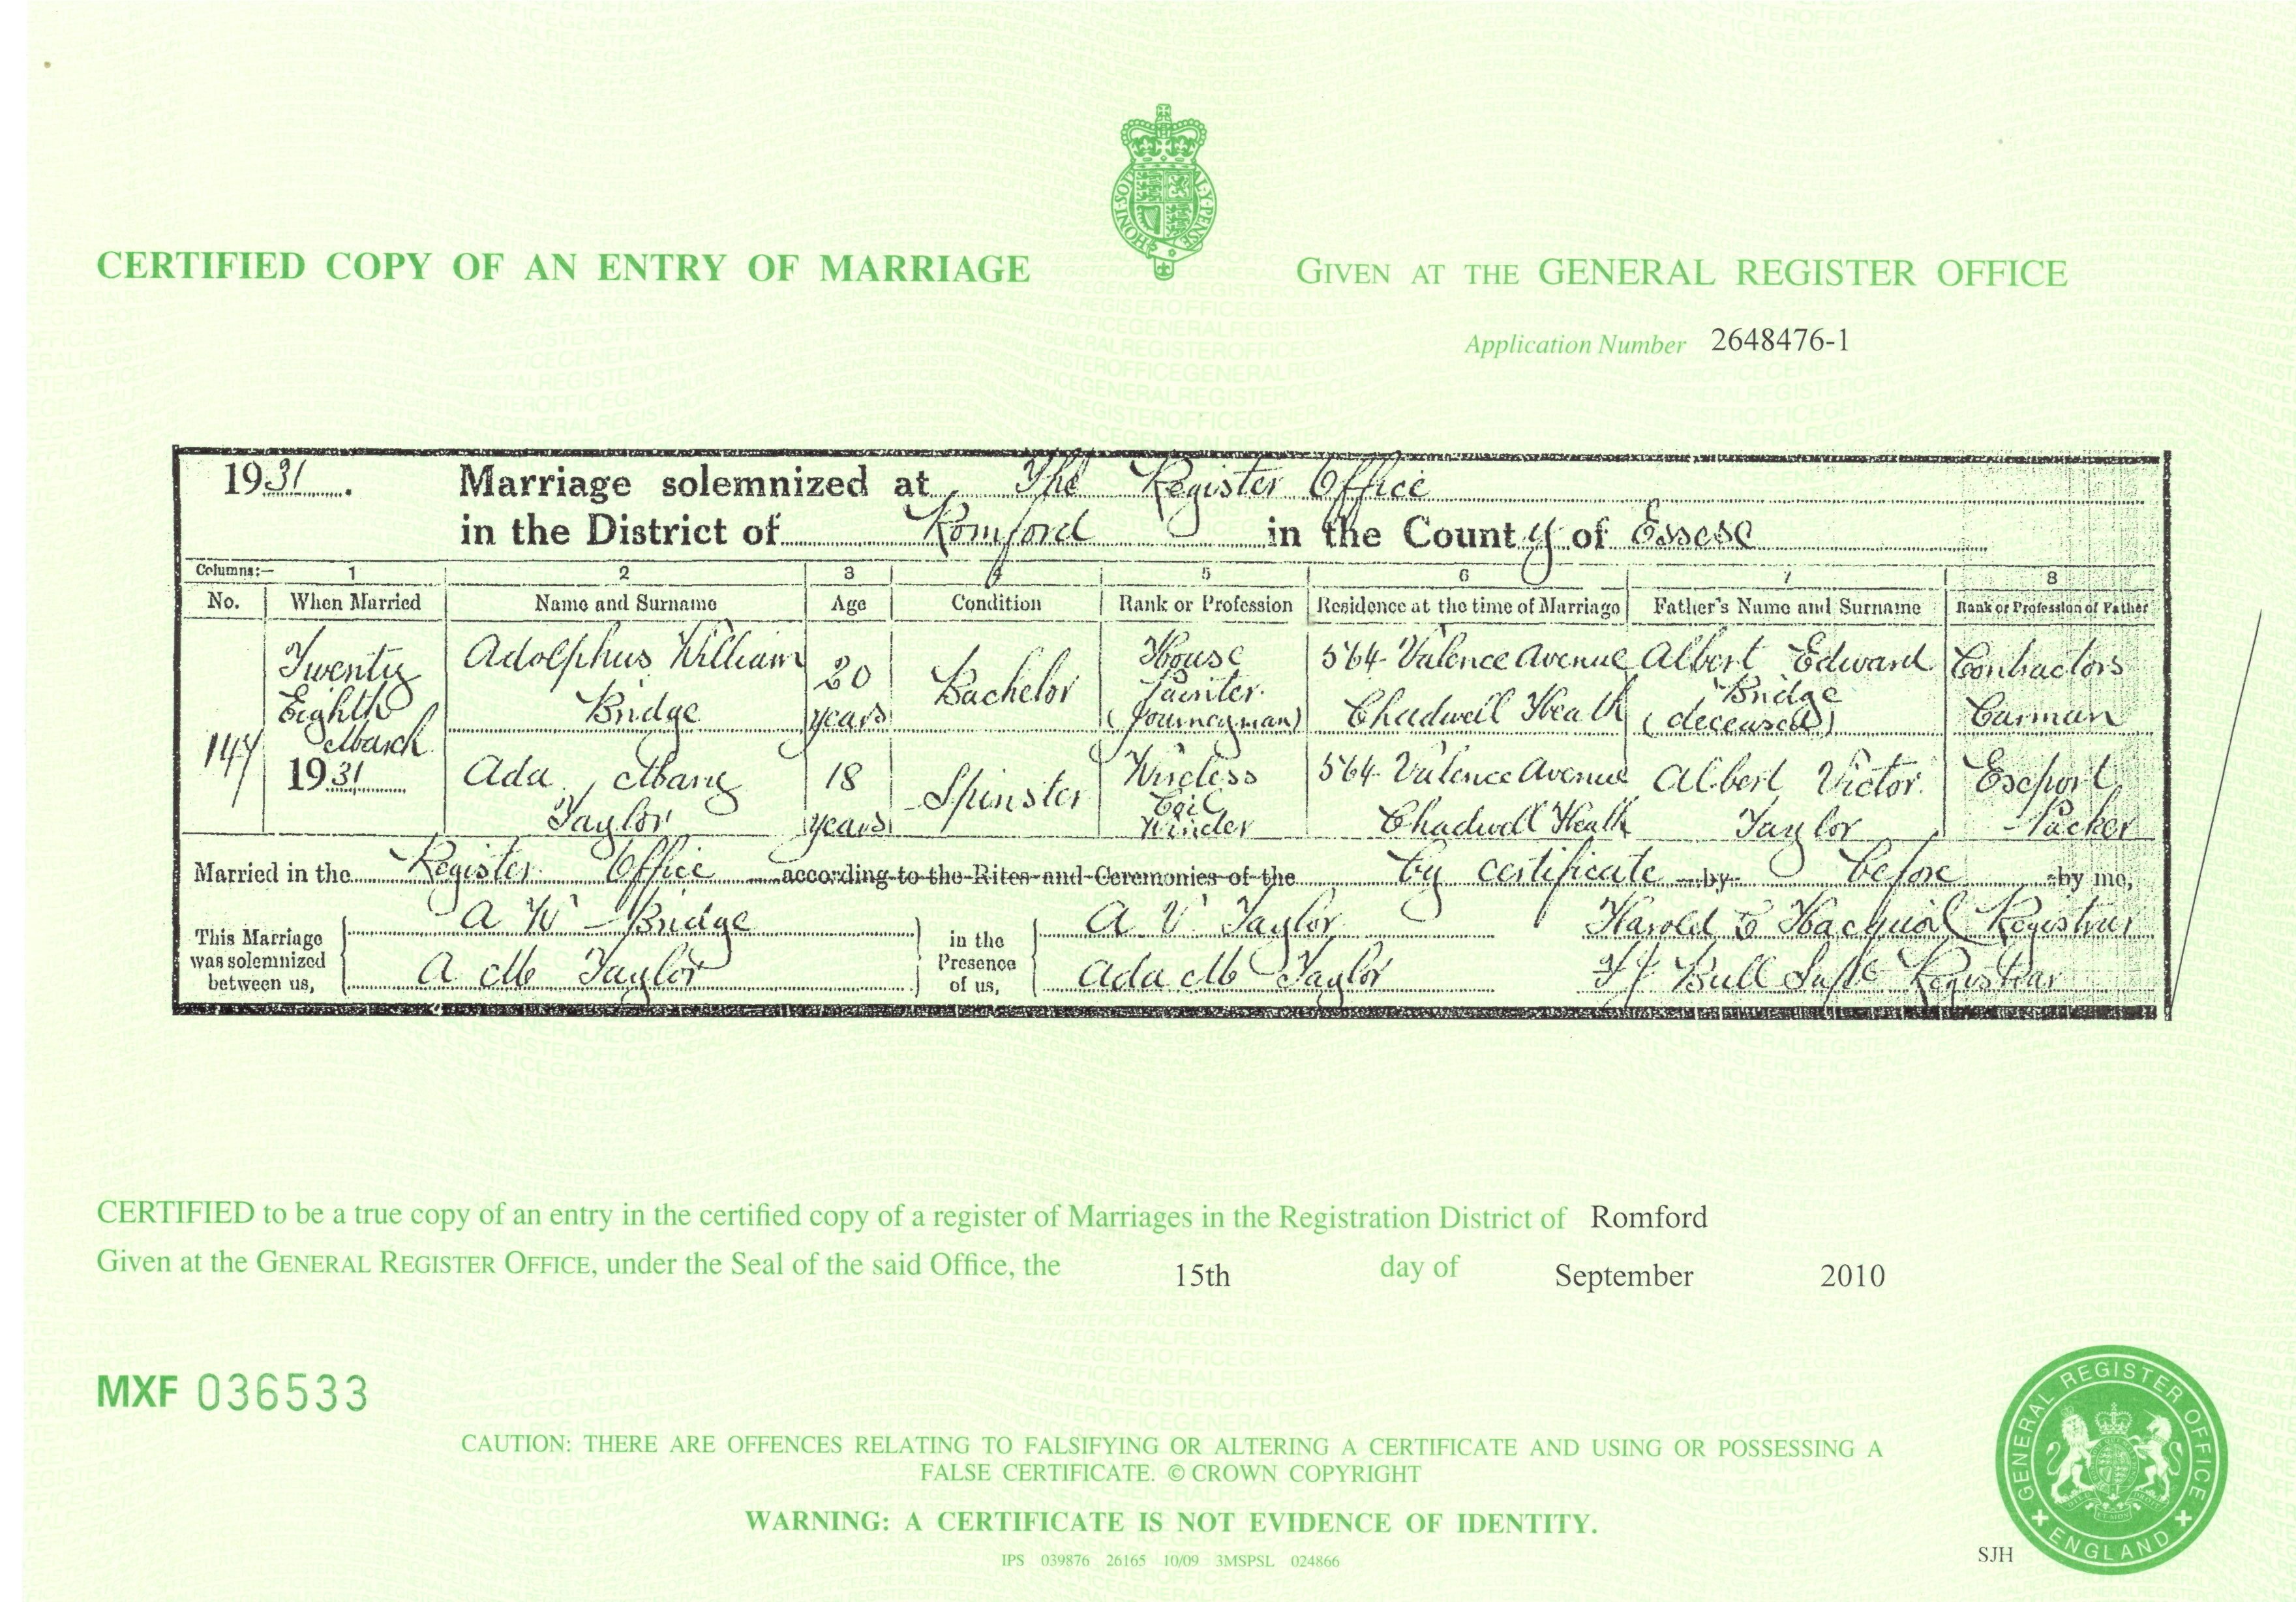 CERTIFIED COPY OF AN ENTRY OF MARRIAGE
GIVEN AT THE GENERAL REGISTER OFFICE
Application Number 2648476-1
1931. Marriage solemnized at The Register Office
in the District of Romford in the County of Essex
Columns:— 1 2 3 4 5 6 7 8
No. When Married Name and Surname Age Condition Rank or Profession Residence at the time of Marriage Father's Name and Surname Rank or Profession of Father
147 Twenty Eighth March 1931
Adolphus William Bridge
20 years
Bachelor
House Painter (Journeyman)
564 Valence Avenue Chadwell Heath
Albert Edward Bridge (deceased)
Contractors Carman
Ada Mary Taylor
18 years
Spinster
Wireless Coil Winder
564 Valence Avenue Chadwell Heath
Albert Victor Taylor
Export Packer
Married in the Register Office according to the Rites and Ceremonies of the by certificate by before by me,
This Marriage was solemnized between us,
A W Bridge
A M Taylor
in the Presence of us,
A V Taylor
Ada M Taylor
Harold E Registrar
Bull Supt Registrar
CERTIFIED to be a true copy of an entry in the certified copy of a register of Marriages in the Registration District of Romford
Given at the GENERAL REGISTER OFFICE, under the Seal of the said Office, the 15th day of September 2010
MXF 036533
CAUTION: THERE ARE OFFENCES RELATING TO FALSIFYING OR ALTERING A CERTIFICATE AND USING OR POSSESSING A
FALSE CERTIFICATE. © CROWN COPYRIGHT
WARNING: A CERTIFICATE IS NOT EVIDENCE OF IDENTITY.
IPS 039876 26165 10/09 3MSPSL 024866
SJH
GENERAL REGISTER OFFICE
ENGLAND